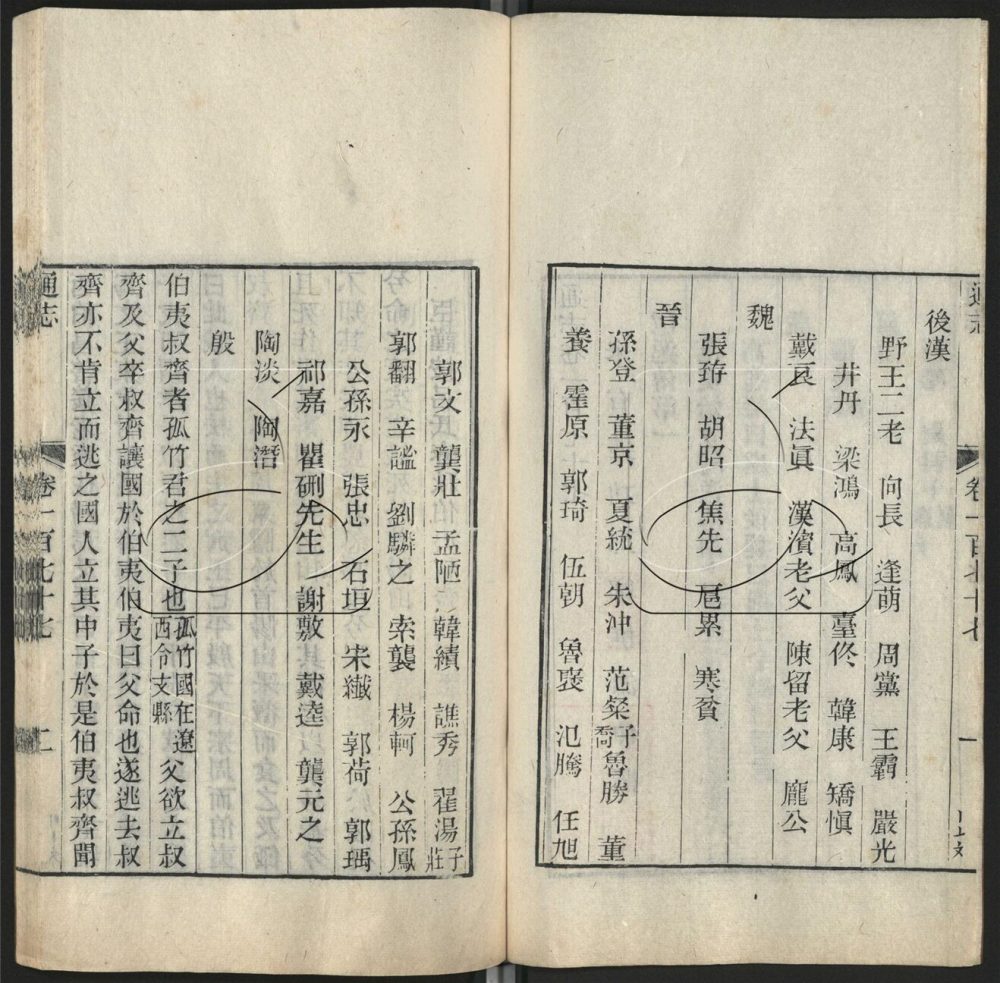 後漢
野王二老 向長 逢萌 周黨 王霸 嚴光
井丹 梁鴻 高鳳 臺佟 韓康 矯慎
戴良 法眞 漢濱老父 陳留老父 龐公
魏
張臶 胡昭 焦先 扈累 寒貧
晉
孫登 董京 夏統 朱沖 范粲子喬 魯勝 董
養 霍原 郭琦 伍朝 魯褒 氾騰 任旭
郭文 龔壯 孟陋 韓績 譙秀 翟湯子莊
郭翻 辛謐 劉驎之 索襲 楊軻 公孫鳳
公孫永 張忠 石垣 宋纖 郭荷 郭瑀
祁嘉 瞿硎先生 謝敷 戴逵 龔元之
陶淡 陶潛
殷
伯夷叔齊者孤竹君之二子也孤竹國在遼西令支縣父欲立叔
齊及父卒叔齊讓國於伯夷伯夷曰父命也遂逃去叔
齊亦不肯立而逃之國人立其中子於是伯夷叔齊聞
通志 卷一百七十七 二